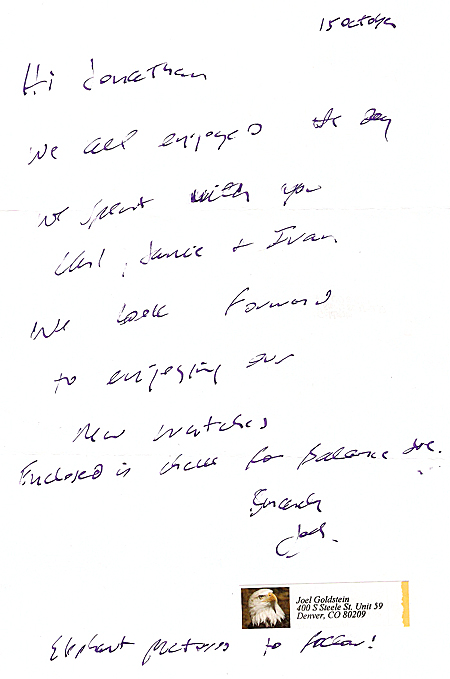 15 October
Hi Jonathan
We all enjoyed the day
we spent with you
, Janice + Ivan
We look forward
to enjoying our
new watches
Enclosed is check for balance due.
Joel.
Joel Goldstein
400 S Steele St. Unit 59
Denver, CO 80209
Elephant pictures to follow!